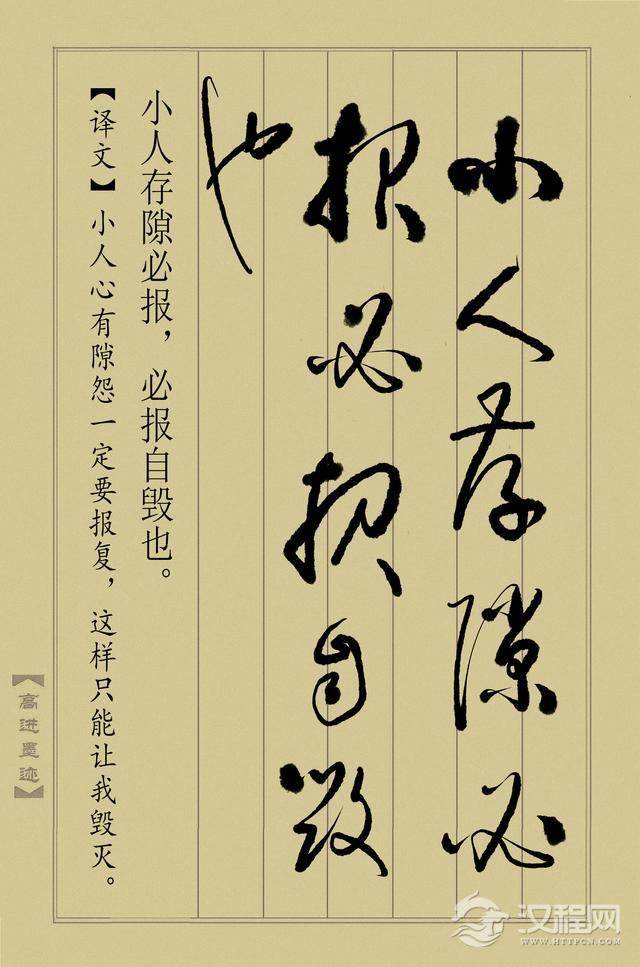 小人存隙必
报必报自毁
也
小人存隙必报，必报自毁也。
【译文】小人心有隙怨一定要报复，这样只能让我毁灭。
【高进墨迹】
汉程网
WWW.HTTPCN.COM